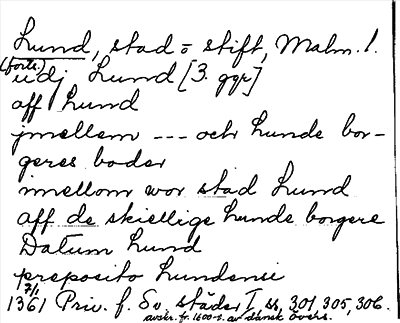 Lund, stad o stift, Malm. l.
(forts.)
udj Lund [3 ggr]
aff Lund
jmellem --- och Lunde bor-
geres boder
imellom wor stad Lund
aff de skiellige Lunde borgere
Datum Lund
preposito Lundensi
7/1
1361 Priv. f. Sv. städer I ss, 301, 305, 306.
avskr. fr. 1600-t. av dansk övers.